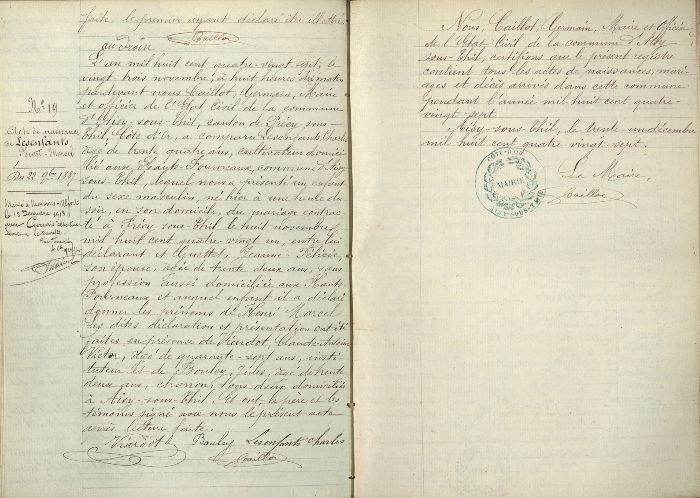 faite, le premier ayant déclaré être Mettre
au Soin
Caillot
N° 19
Acte de naissance
de Lesenfants
Henri-Marcel
Du 22 9bre 1887
Marié à
le 13 Décembre 1913
avec
L'an mil huit cent quatre-vingt sept, le
vingt trois novembre, à huit heures du matin
par devant nous Caillot, Germain, Maire
et officier de l'état Civil de la commune
d'Aisy-sous-Thil, canton de Précy-sous-
Thil, Côte d'Or, a comparu Lesenfants, Charles
âgé de trente quatre ans, cultivateur domici
lié aux Hauts-Fourneaux, commune d'Aisy-
sous-Thil, lequel nous a présenté un enfant
du sexe masculin, né hier à une heure du
soir, en son domicile, du mariage contrac
té à Précy-sous-Thil le huit novembre
mil huit cent quatre-vingt un, entre lui
déclarant et Guettet, Jeanne-Félicie,
son épouse, âgée de trente deux ans, sans
profession aussi domiciliée aux Hauts-
Fourneaux et auquel enfant il a déclaré
donner les prénoms de Henri Marcel
Les dites déclaration et présentation ont été
faites en présence de Viardot, Claude-Antoine
Victor, âgé de quarante-sept ans, insti-
tuteur et de Jules, âgé de trente
deux ans, charron, tous deux domiciliés
à Aisy-sous-Thil. Et ont le père et les
témoins signé avec nous le présent acte
après lecture faite.
Viardot Lesenfants Charles
Caillot
Nous, Caillot, Germain, Maire et Officier
de l'Etat-Civil de la commune d'Aisy-
sous-Thil, certifions que le présent registre
contient tous les actes de naissances, mari-
ages et décès arrivés dans cette commune
pendant l'année mil huit cent quatre-
vingt sept.
Aisy-sous-Thil, le trente-un décembre
mil huit cent quatre vingt sept.
Le Maire,
Caillot
MAIRIE